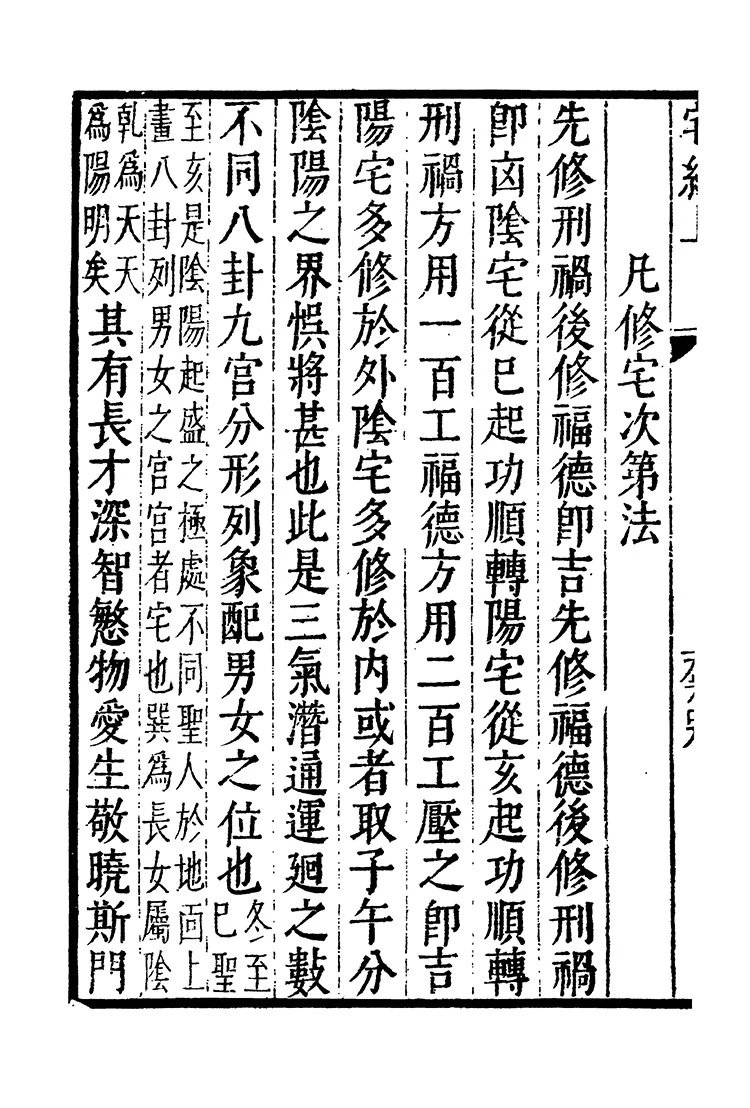 宅經上
凡修宅次第法
先修刑禍後修福德卽吉先修福德後修刑禍
卽凶陰宅從巳起功順轉陽宅從亥起功順轉
刑禍方用一百工福德方用二百工壓之卽吉
陽宅多修於外陰宅多修於内或者取子午分
陰陽之界悞將甚也此是三氣潛通運廻之數
不同八封九宫分形列象配男女之位也冬至
巳聖
至亥是陰陽起盛之極處不同聖人於地面上
畫八封列男女之宫宫者宅也巽爲長女屬陰
乾爲天天
爲陽明矣其有長才深智慜物愛生敬曉斯門